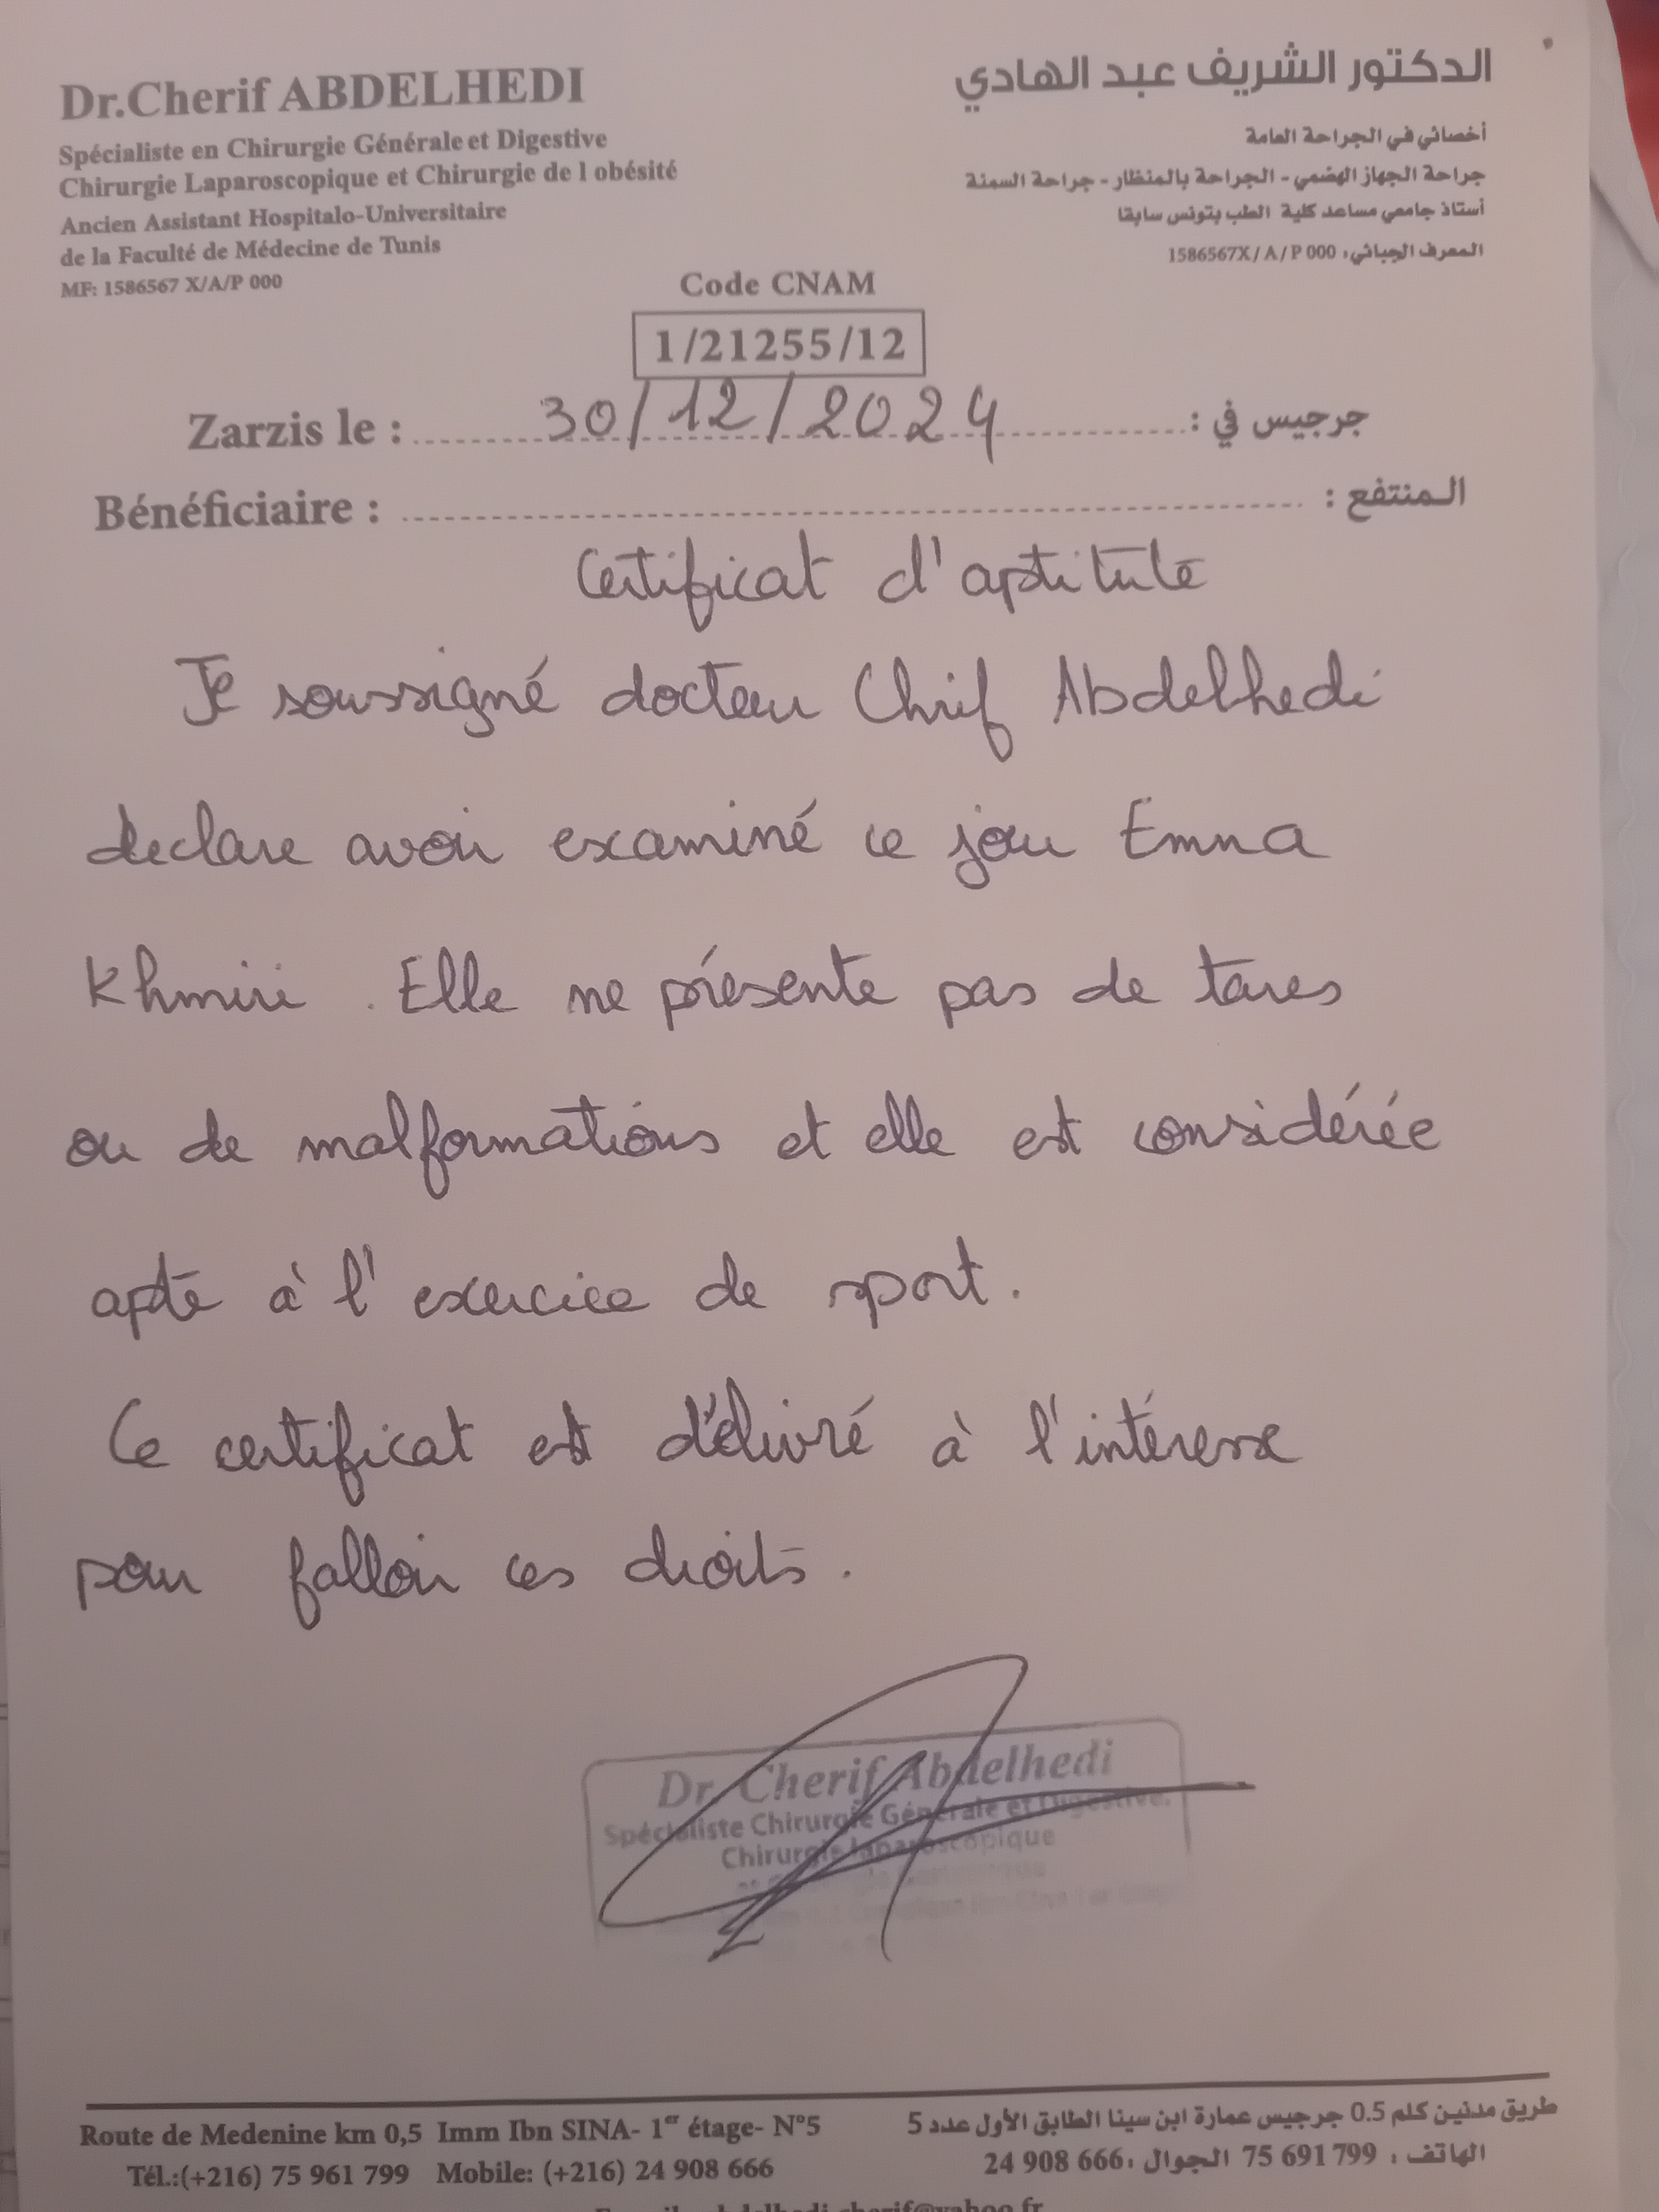 Dr.Cherif ABDELHEDI
Spécialiste en Chirurgie Générale et Digestive
Chirurgie Laparoscopique et Chirurgie de l obésité
Ancien Assistant Hospitalo-Universitaire
de la Faculté de Médecine de Tunis
MF: 1586567 X/A/P 000
الدكتور الشريف عبد الهادي
أخصائي في الجراحة العامة
جراحة الجهاز الهضمي - الجراحة بالمنظار - جراحة السمنة
أستاذ جامعي مساعد كلية الطب بتونس سابقا
المعرف الجبائي: 1586567X/A/P 000
Code CNAM
1/21255/12
Zarzis le : 30/12/2024 جرجيس في :
Bénéficiaire : المنتفع :
Certificat d'aptitute
Je soussigné docteur Chrif Abdelhedi
declare avoir examiné ce jour Emna
Khmiri . Elle ne présente pas de tares
ou de malformations et elle est considérée
apte à l'exercice de sport.
Ce certificat est délivré à l'intéresse
pour falloir ces droits.
Dr. Cherif Abdelhedi
Spécialiste Chirurgie Générale et Digestive,
Chirurgie laparoscopique
Route de Medenine km 0,5 Imm Ibn SINA- 1er étage- N°5
Tél.:(+216) 75 961 799 Mobile: (+216) 24 908 666
طريق مدنين كلم 0.5 جرجيس عمارة ابن سينا الطابق الأول عدد 5
الهاتف : 75 691 799 الجوال : 24 908 666